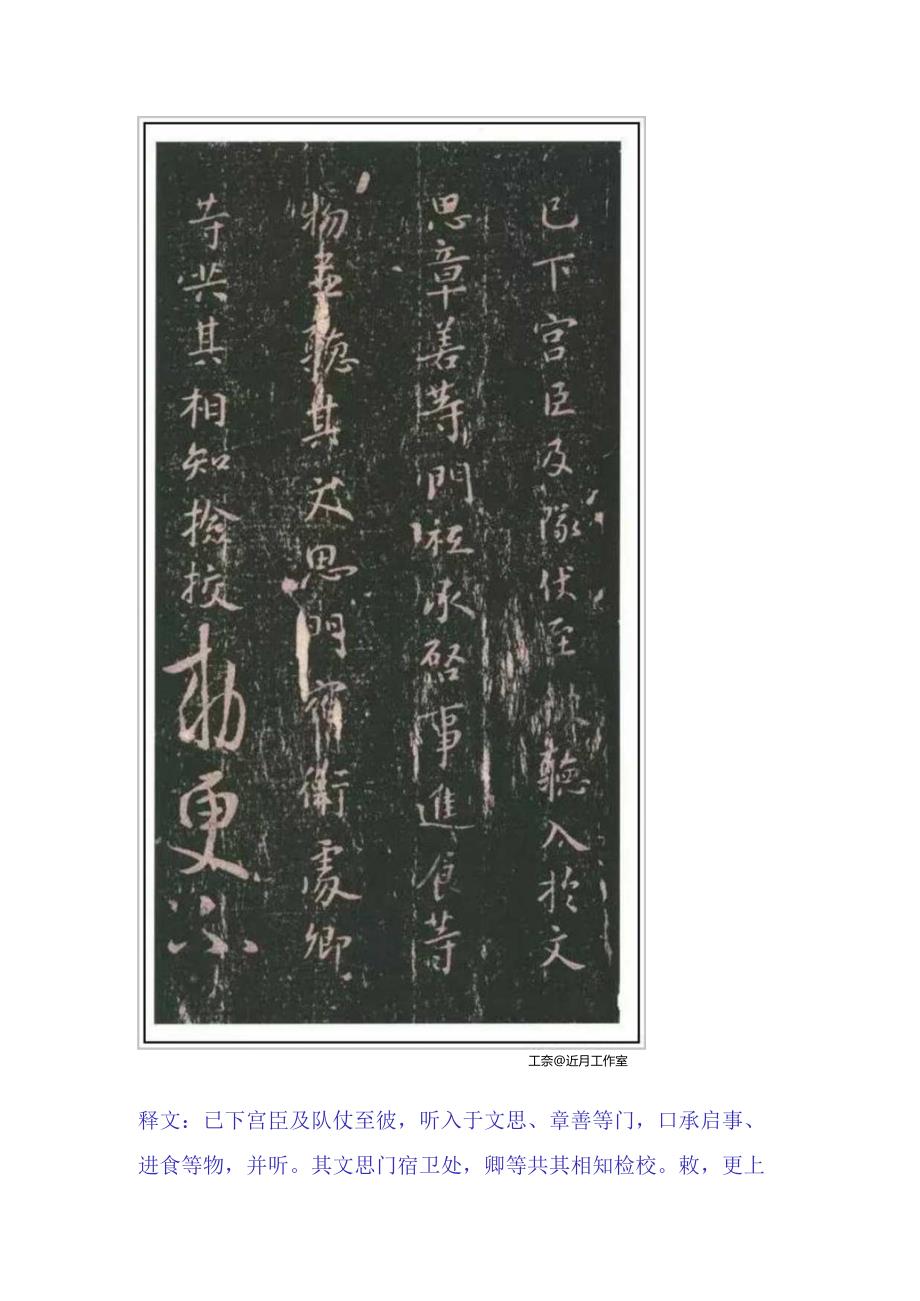 已下宫臣及隊仗至聽入於文
思章善等門祗承啓事進食等
物並聽其文思門宿衛處卿
等共其相知撿挍勅更不
工奈@近月工作室
释文：已下宫臣及队仗至彼，听入于文思、章善等门，口承启事、
进食等物，并听。其文思门宿卫处，卿等共其相知检校。敕，更上